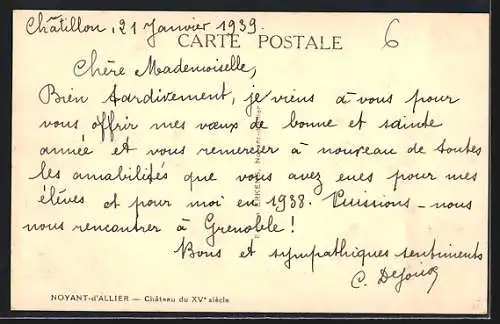 Châtillon, 21 Janvier 1939.
CARTE POSTALE
6
Chère Mademoiselle,
Bien tardivement, je viens à vous pour
vous offrir mes vœux de bonne et sainte
année et vous remercier à nouveau de toutes
les amabilités que vous avez eues pour mes
élèves et pour moi en 1938. Puissions-nous
nous rencontrer à Grenoble !
Bons et sympathiques sentiments
C.
NOYANT-d'ALLIER — Château du XVe siècle